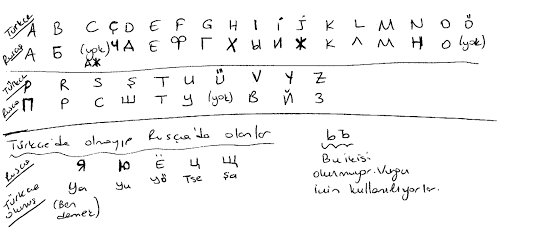 Türkçe A B C Ç D E F G H I İ J K L M N O Ö
Rusça А Б (yok) Ч Д Е Ф Г Х Ы И Ж К Л М Н О (yok)
ДЖ
Türkçe P R S Ş T U Ü V Y Z
Rusça П Р С Ш Т У (yok) В Й З
Türkçe'de olmayıp Rusça'da olanlar
Rusça Я Ю Ё Ц Щ
Türkçe okunuş Ya Yu Yö Tse Şa
(Ben demek)
ь ъ
Bu ikisi
okunmuyor. Vurgu
için kullanılıyorlar.